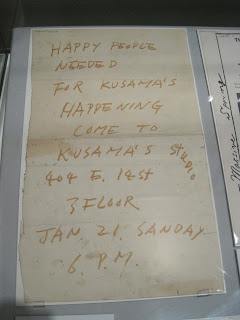 HAPPY PEOPLE
NEEDED
FOR KUSAMA'S
HAPPENING
COME TO
KUSAMA'S STUDIO
404 E. 14st
3 FLOOR
JAN 21. SANDAY
6 P.M.